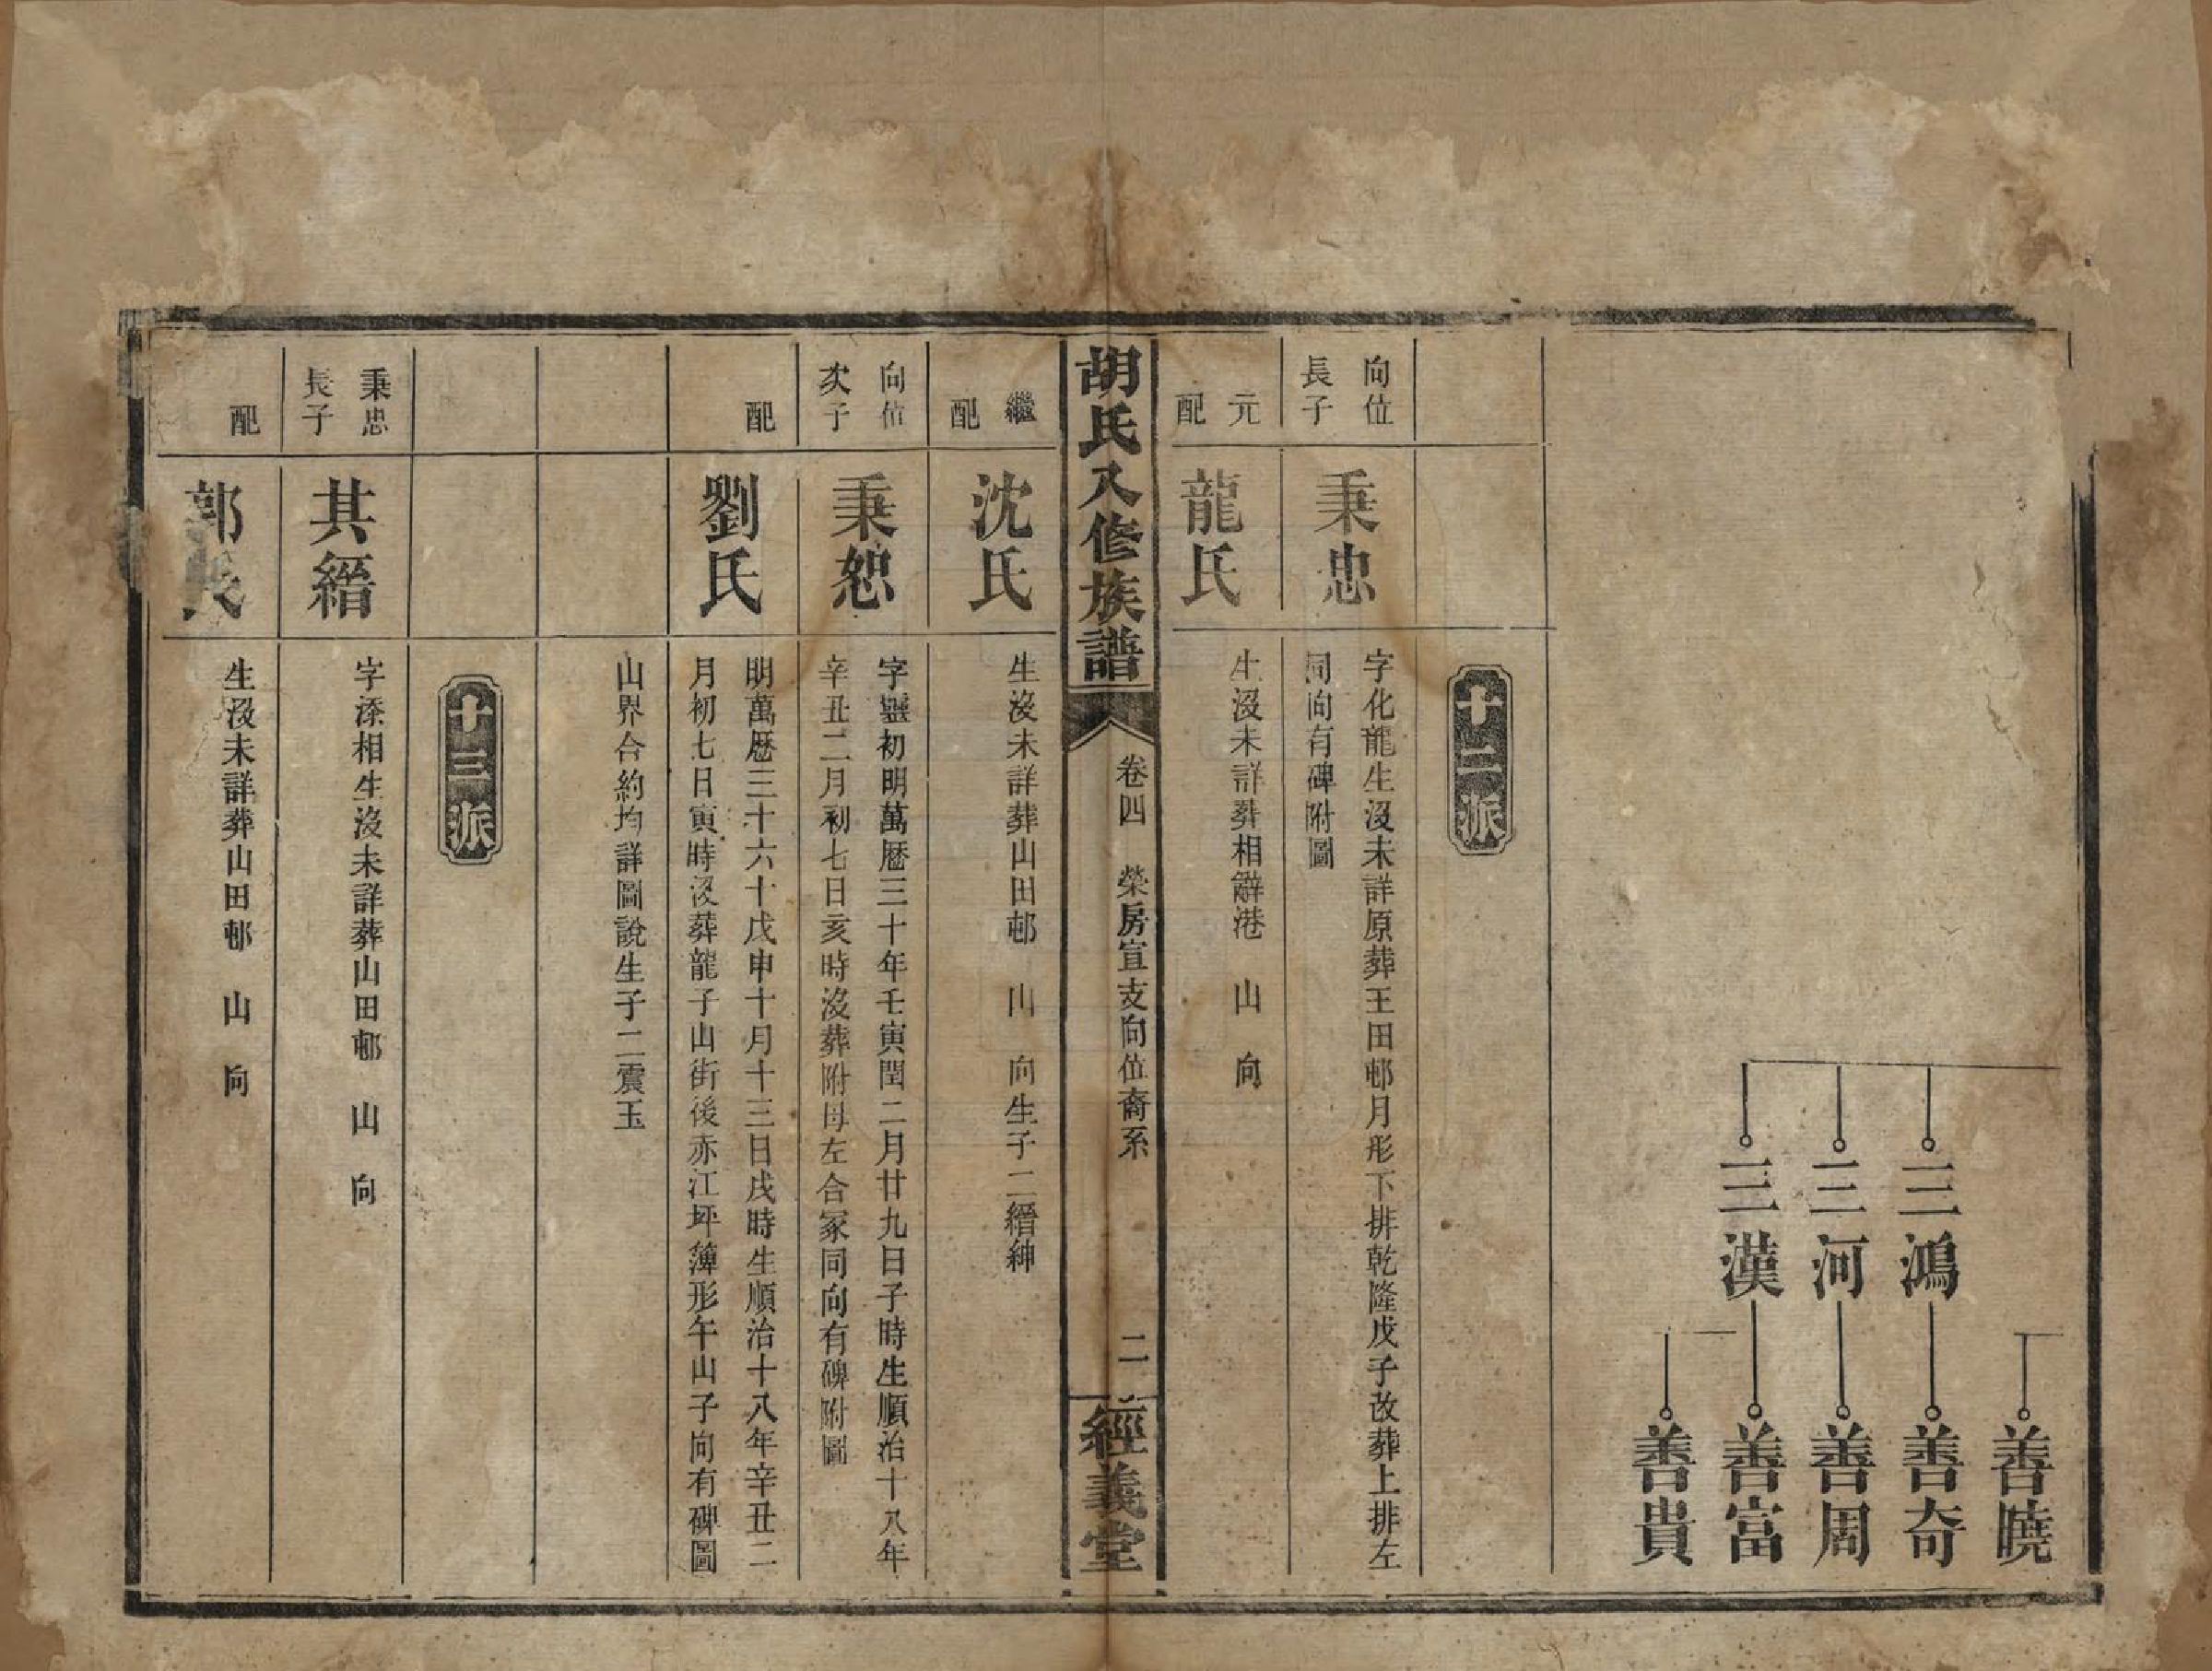 善曉
三鴻
善奇
三河
善周
三漢
善富
善貴
十二派
向位
長子
秉忠
字化龍生沒未詳原葬王田邨月形下排乾隆戊子改葬上排左
同向有碑附圖
元
配
龍氏
生沒未詳葬相辭港　山　向
胡氏八修族譜
卷四　榮房宣支向位裔系
二
經義堂
繼
配
沈氏
生沒未詳葬山田邨　山　向生子二縉紳
向位
次子
秉恕
字靈初明萬曆三十年壬寅閏二月廿九日子時生順治十八年
辛丑二月初七日亥時沒葬附母左合冢同向有碑附圖
配
劉氏
明萬曆三十六十戊申十月十三日戌時生順治十八年辛丑二
月初七日寅時沒葬龍子山街後赤江坪簿形午山子向有碑圖
山界合約均詳圖說生子二震玉
十三派
秉忠
長子
其縉
字添相生沒未詳葬山田邨　山　向
配
郭氏
生沒未詳葬山田邨　山　向